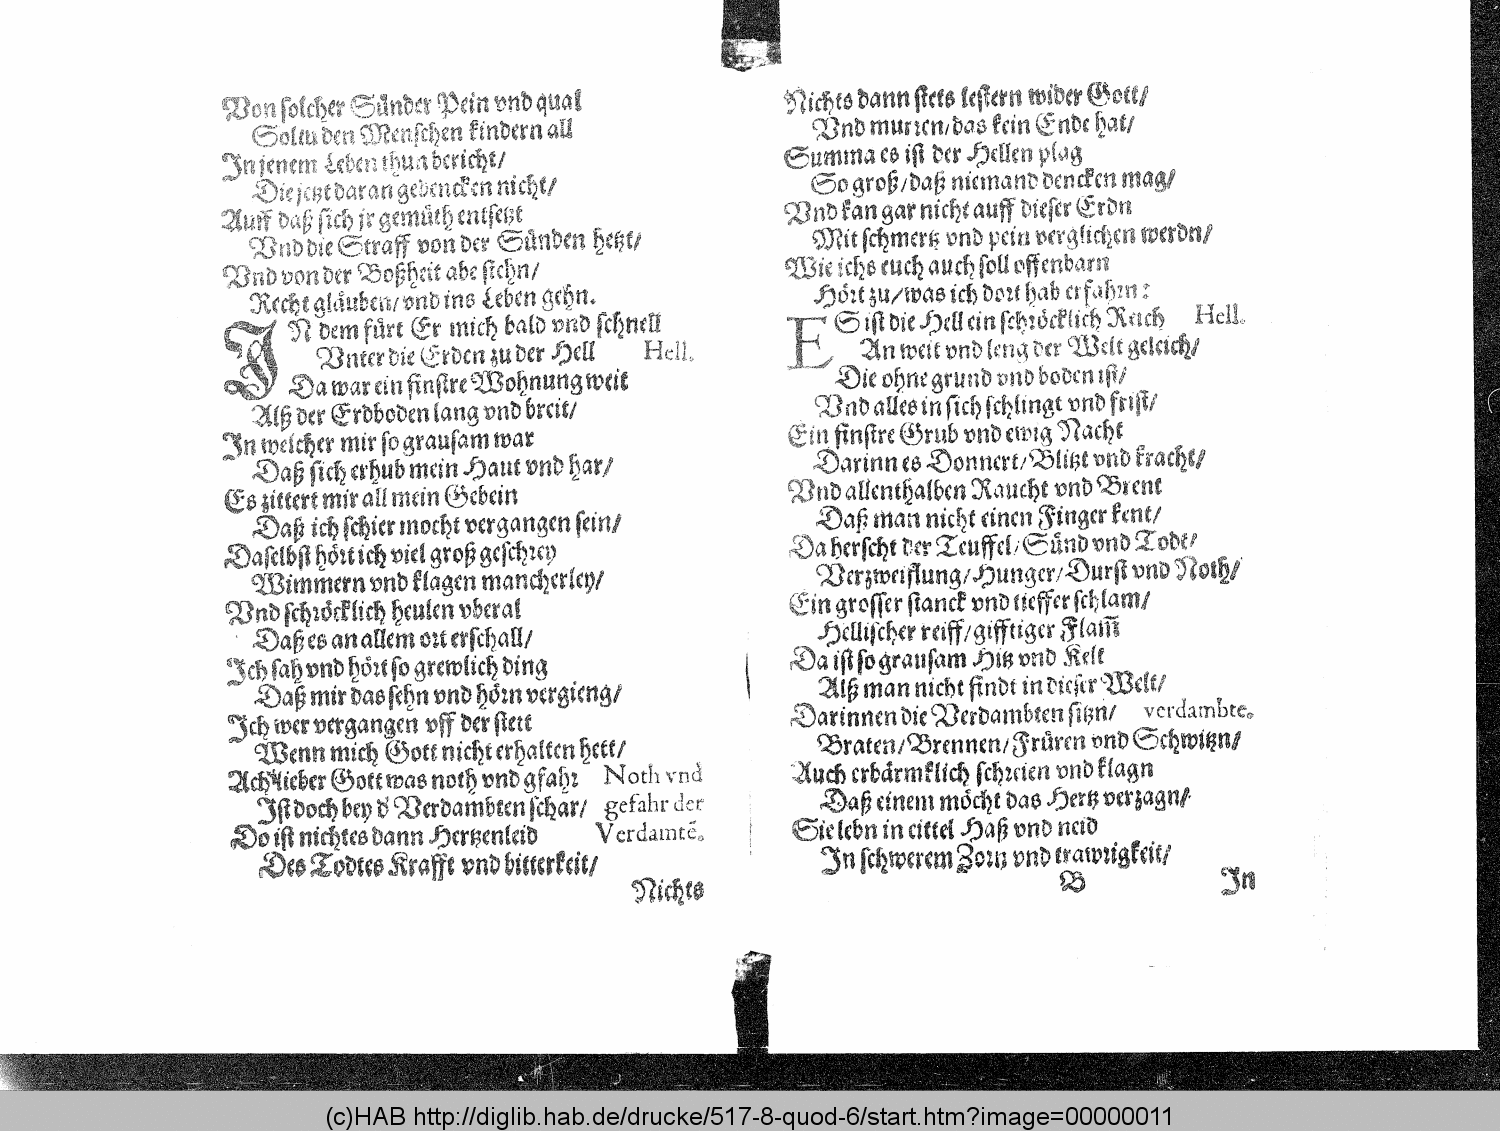 Von solcher Sünder Pein vnd qual
Soltu den Menschen kindern all
In jenem Leben thun bericht/
Die jetzt daran gedencken nicht/
Auff daß sich jr gemüth entsetzt
Vnd die Straff von der Sünden hetzt/
Vnd von der Boßheit abe stehn/
Recht gläuben/ vnd ins Leben gehn.
IN dem fürt Er mich bald vnd schnell
Vnter die Erden zu der Hell Hell.
Da war ein finstre Wohnung weit
Alß der Erdboden lang vnd breit/
In welcher mir so grausam war
Daß sich erhub mein Haut vnd har/
Es zittert mir all mein Gebein
Daß ich schier mocht vergangen sein/
Daselbst hört ich viel groß geschrey
Wimmern vnd klagen mancherley/
Vnd schröcklich heulen vberal
Daß es an allem ort erschall/
Ich sah vnd hört so grewlich ding
Daß mir das sehn vnd hörn vergieng/
Ich wer vergangen vff der stett
Wenn mich Gott nicht erhalten hett/
Ach lieber Gott was noth vnd gfahr Noth vnd
Ist doch bey d' Verdambten schar/ gefahr der
Do ist nichtes dann Hertzenleid Verdamtẽ.
Des Todtes Krafft vnd bitterkeit/
Nichts
Nichts dann stets lestern wider Gott/
Vnd murren/ das kein Ende hat/
Summa es ist der Hellen plag
So groß/ daß niemand dencken mag/
Vnd kan gar nicht auff dieser Erdn
Mit schmertz vnd pein verglichen werdn/
Wie ichs euch auch soll offenbarn
Hört zu/ was ich dort hab erfahrn:
ES ist die Hell ein schröcklich Reich Hell.
An weit vnd leng der Welt geleich/
Die ohne grund vnd boden ist/
Vnd alles in sich schlingt vnd frist/
Ein finstre Grub vnd ewig Nacht
Darinn es Donnert/ Blitzt vnd kracht/
Vnd allenthalben Raucht vnd Brent
Daß man nicht einen Finger kent/
Da herscht der Teuffel/ Sünd vnd Todt/
Verzweiflung/ Hunger/ Durst vnd Noth/
Ein grosser stanck vnd tieffer schlam/
Hellischer reiff/ gifftiger Flam̃
Da ist so grausam Hitz vnd Kelt
Alß man nicht findt in dieser Welt/
Darinnen die Verdambten sitzn/ verdambte.
Braten/ Brennen/ Früren vnd Schwitzn/
Auch erbärmklich schreien vnd klagn
Daß einem möcht das Hertz verzagn/
Sie lebn in eittel Haß vnd neid
In schwerem Zorn vnd trawrigkeit/
B In
(c)HAB http://diglib.hab.de/drucke/517-8-quod-6/start.htm?image=00000011